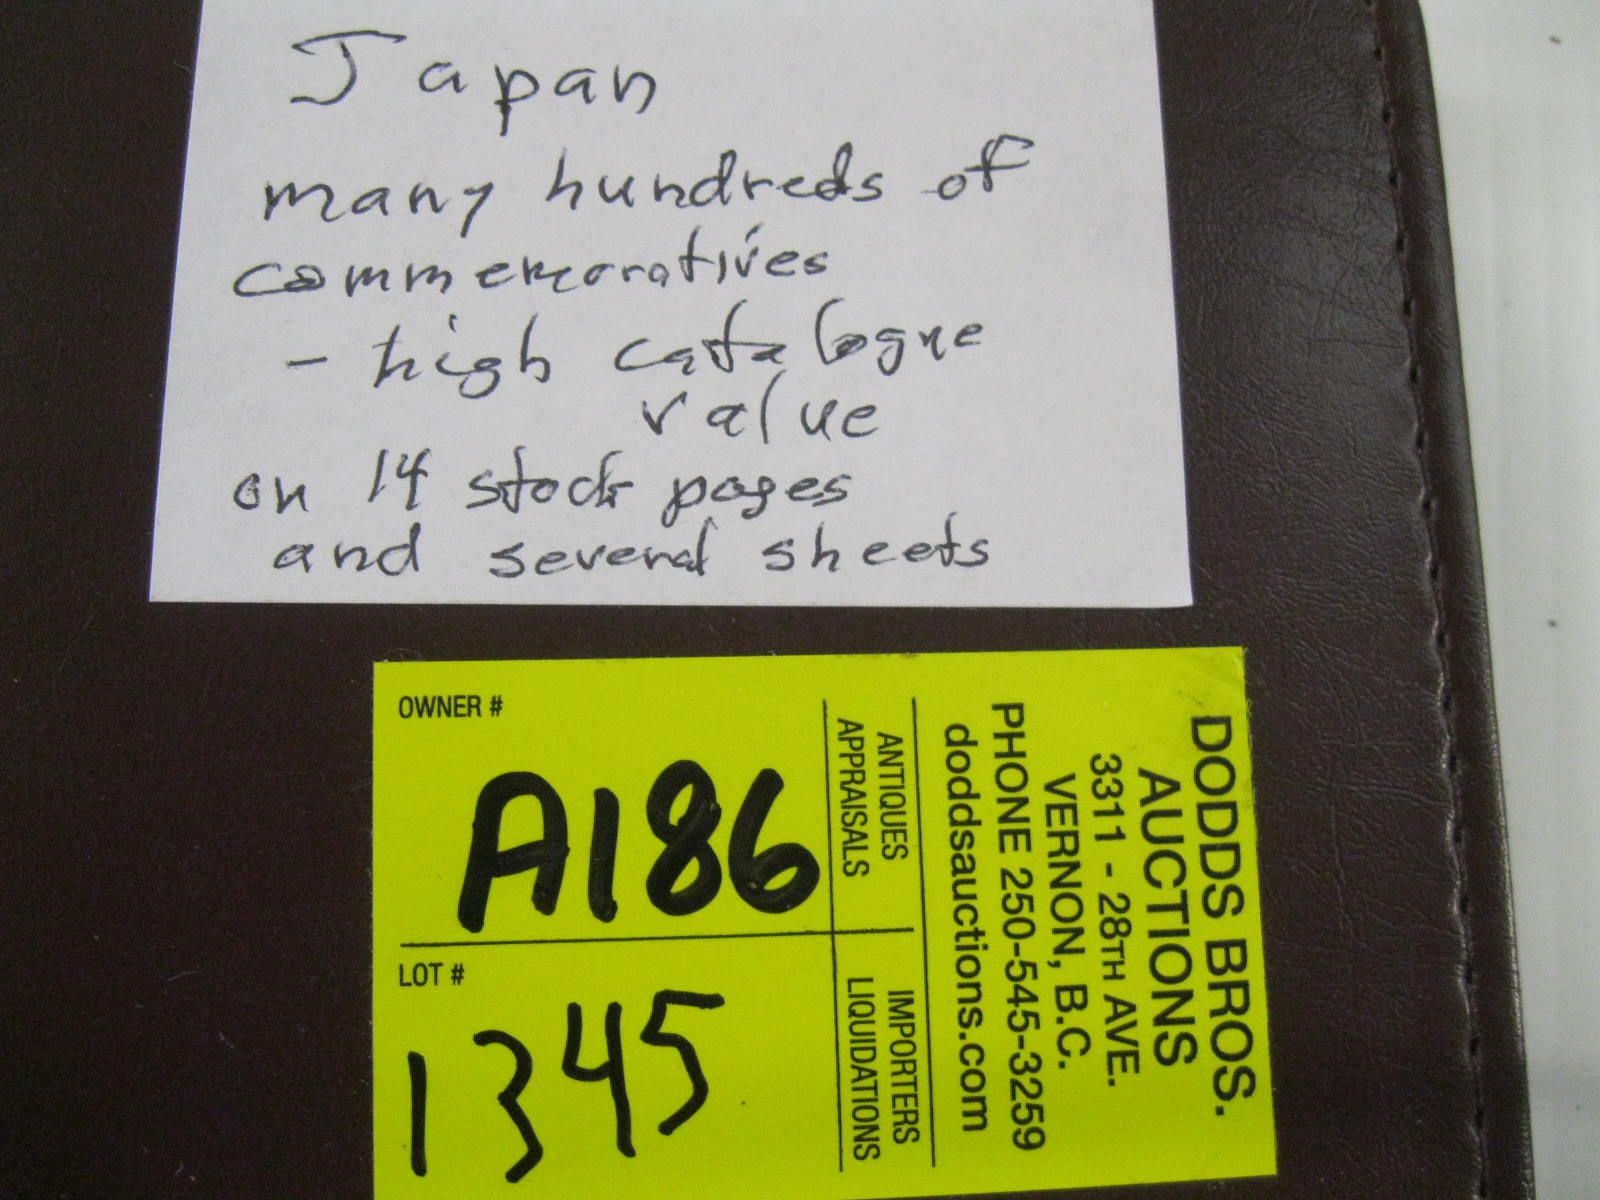 Japan
many hundreds of
commemoratives
- high catalogue
value
on 14 stock pages
and several sheets
OWNER #
A186
LOT #
1345
ANTIQUES
APPRAISALS
IMPORTERS
LIQUIDATIONS
DODDS BROS.
AUCTIONS
3311 - 28TH AVE.
VERNON, B.C.
PHONE 250-545-3259
doddsauctions.com